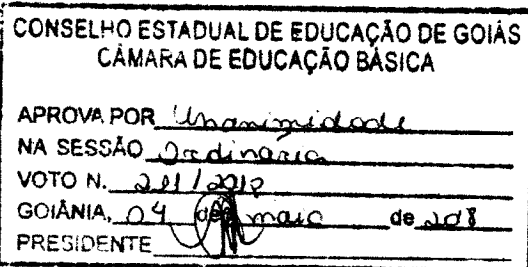 CONSELHO ESTADUAL DE EDUCAÇÃO DE GOIÁS
CÂMARA DE EDUCAÇÃO BÁSICA
APROVA POR Unanimidade
NA SESSÃO Ordinaria
VOTO N.
GOIÂNIA, 04 de maio de 2018
PRESIDENTE